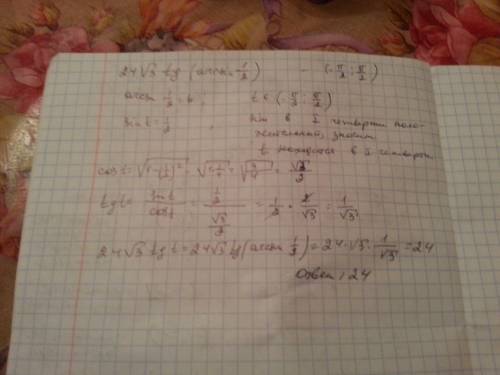 24√3 tg (arcsin 1/2) - (-π/2; π/2)
arcsin 1/2 = t, t ∈ (-π/2; π/2)
sin t = 1/2, sin в I четверти поло-
жительный, значит
t находится в I четверти
cos t = √(1-(1/2)²) = √(1-1/4) = √(3/4) = √3/2
tg t = sin t / cos t = (1/2)/(√3/2) = 1/2 · 2/√3 = 1/√3
24√3 tg t = 24√3 tg (arcsin 1/2) = 24·√3 · 1/√3 = 24
Ответ: 24